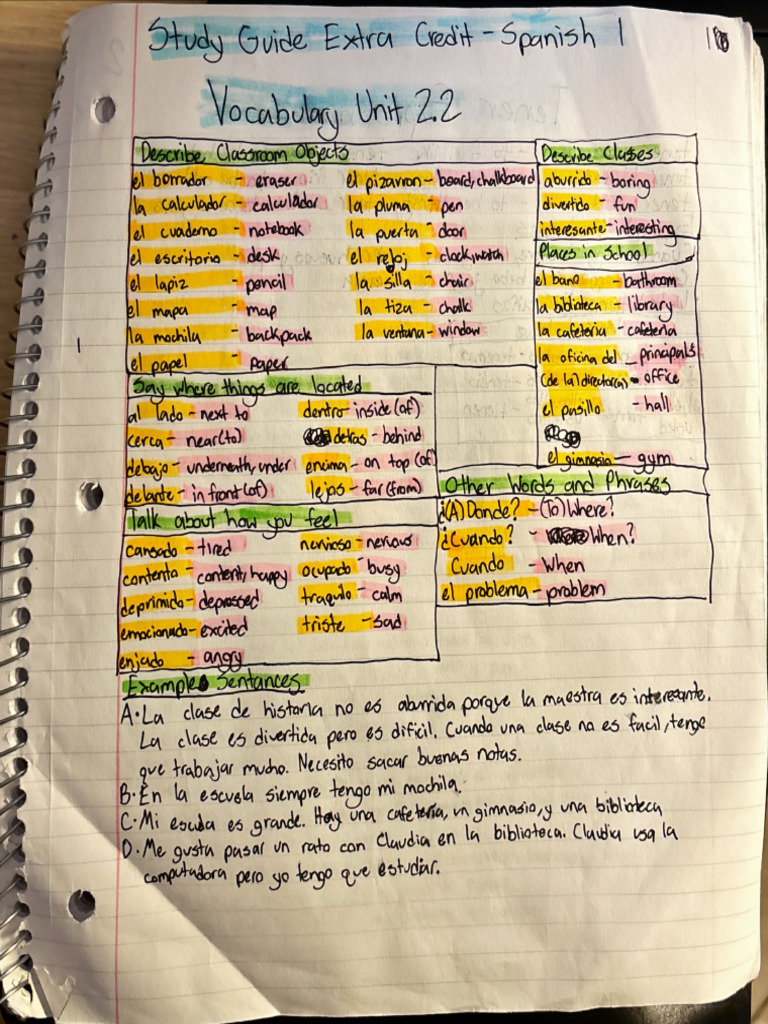 Study Guide Extra Credit - Spanish 1
Vocabulary Unit 2.2
Describe Classroom Objects
el borrador - eraser
la calculador - calculador
el cuaderno - notebook
el escritorio - desk
el lapiz - pencil
el mapa - map
la mochila - backpack
el papel - paper
el pizarron - board, chalkboard
la pluma - pen
la puerta - door
el reloj - clock, watch
la silla - chair
la tiza - chalk
la ventana - window
Describe Classes
aburrido - boring
divertido - fun
interesante - interesting
Places in School
el bano - bathroom
la biblioteca - library
la cafeteria - cafeteria
la oficina del - principals
(de la) director(a) - office
el pasillo - hall
el gimnasio - gym
Say where things are located
al lado - next to
cerca - near (to)
debajo - underneath, under
delante - in front (of)
dentro - inside (of)
detras - behind
encima - on top (of)
lejos - far (from)
Talk about how you feel
cansado - tired
contento - content, happy
deprimido - depressed
emocionado - excited
enjado - angry
nervioso - nervous
ocupado - busy
traquilo - calm
triste - sad
Other Words and Phrases
¿(A) Donde? - (To) Where?
¿Cuando? - When?
Cuando - When
el problema - problem
Examples Sentances
A. La clase de historia no es aburrida porque la maestra es interesante.
La clase es divertida pero es dificil. Cuando una clase no es facil, tengo
que trabajar mucho. Necesito sacar buenas notas.
B. En la escuela siempre tengo mi mochila.
C. Mi escula es grande. Hay una cafeteria, un gimnasio, y una biblioteca
D. Me gusta pasar un rato con Claudia en la biblioteca. Claudia usa la
computadora pero yo tengo que estudiar.